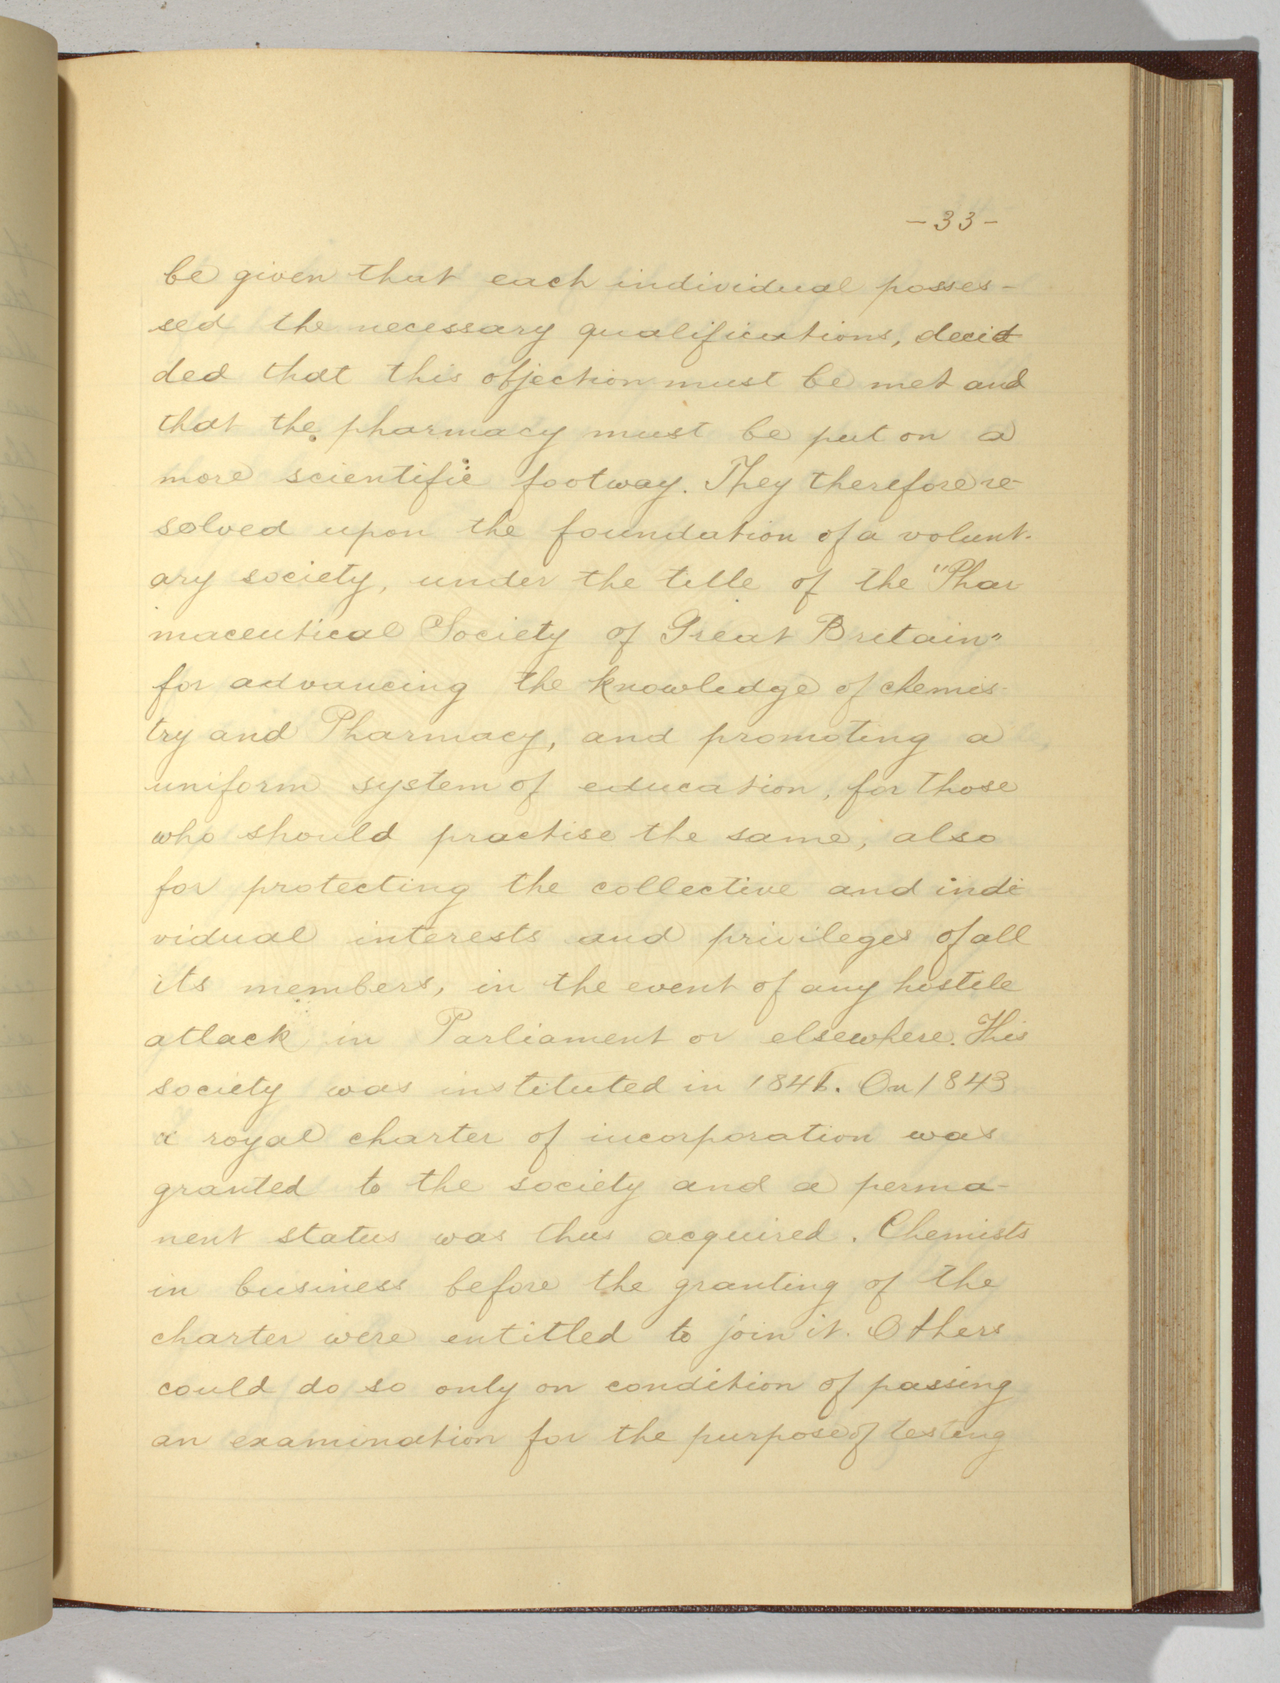 -33-
be given that each individual posses-
sed the necessary qualifications, decid
ded that this objection must be met and
that the pharmacy must be put on a
more scientific footway. They therefore re-
solved upon the foundation of a volunt-
ary society, under the title of the "Phar
maceutical Society of Great Britain"
for advancing the knowledge of chemis-
try and Pharmacy, and promoting a
uniform system of education, for those
who should practise the same, also
for protecting the collective and indi
vidual interests and privileges of all
its members, in the event of any hostile
attack in Parliament or elsewhere. This
society was instituted in 1841. On 1843
a royal charter of incorporation was
granted to the society and a perma-
nent status was thus acquired. Chemists
in business before the granting of the
charter were entitled to join it. Others
could do so only on condition of passing
an examination for the purpose of testing